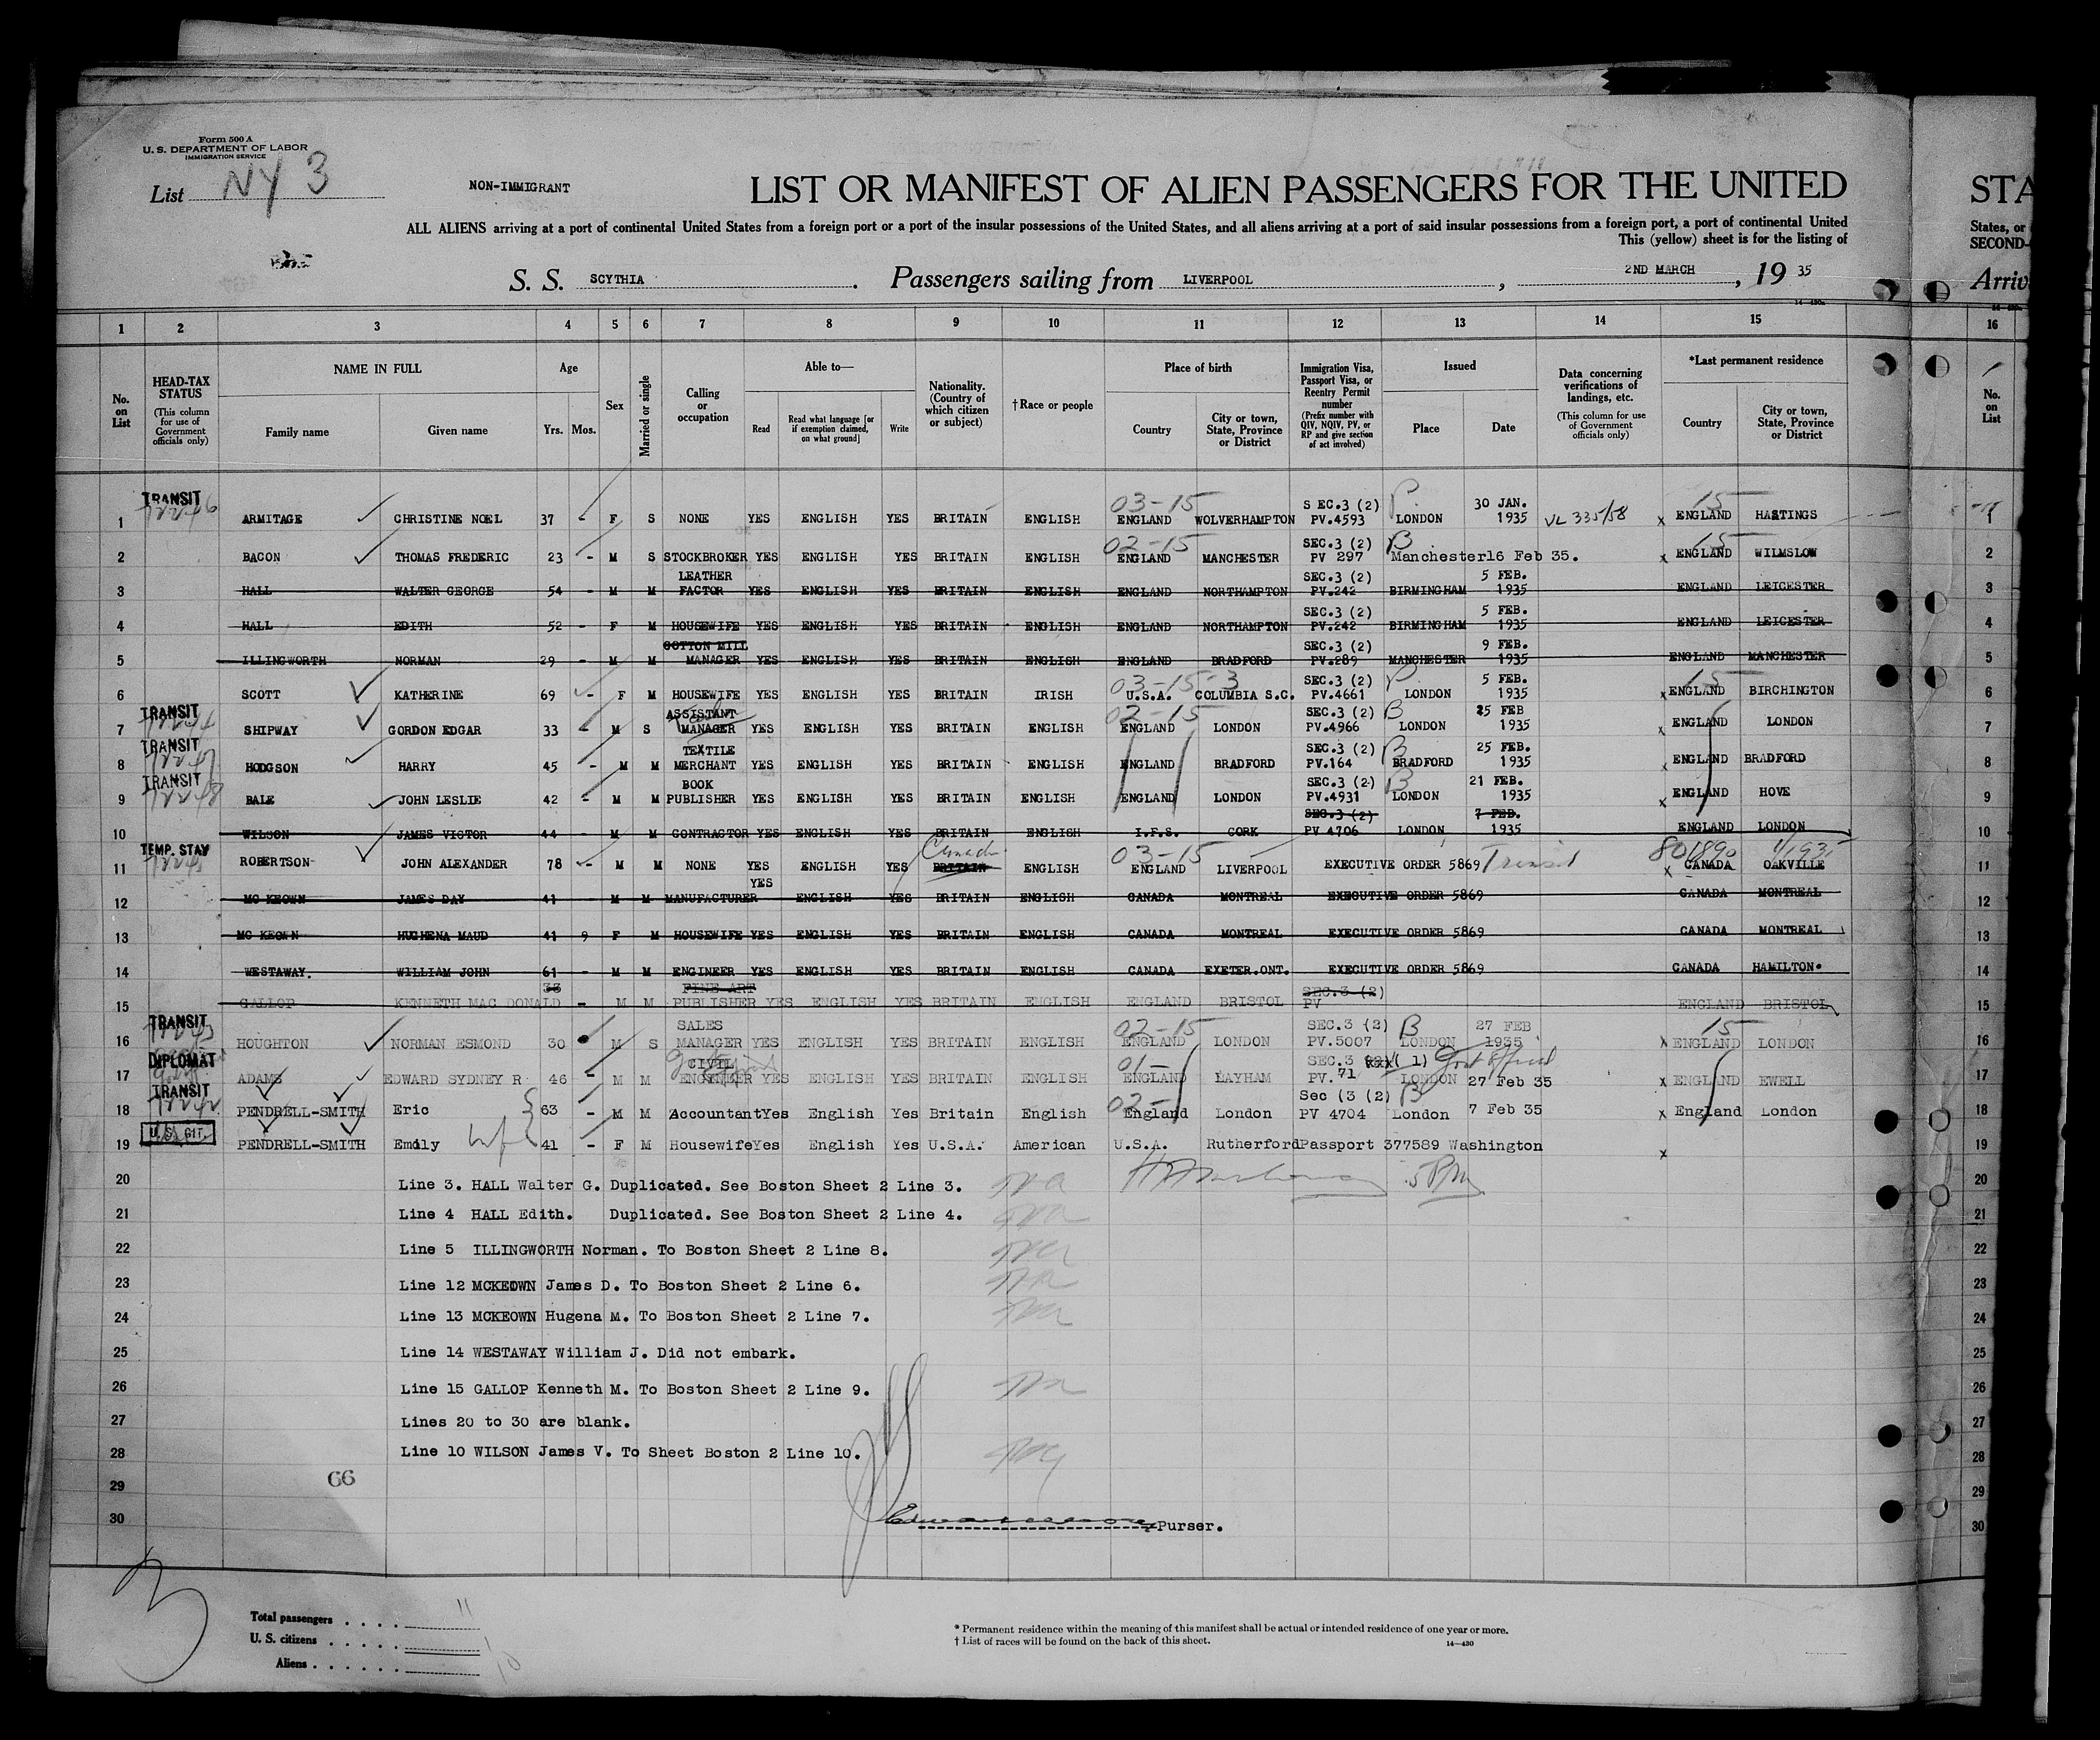 Form 500 A
U. S. DEPARTMENT OF LABOR
IMMIGRATION SERVICE
List NY 3
NON-IMMIGRANT
LIST OR MANIFEST OF ALIEN PASSENGERS FOR THE UNITED
STA
ALL ALIENS arriving at a port of continental United States from a foreign port or a port of the insular possessions of the United States, and all aliens arriving at a port of said insular possessions from a foreign port, a port of continental United
States, or
This (yellow) sheet is for the listing of
SECOND-
S. S. SCYTHIA. Passengers sailing from LIVERPOOL, 2ND MARCH, 19 35
Arriv
1 2 3 4 5 6 7 8 9 10 11 12 13 14 15 16
No. on List
HEAD-TAX STATUS (This column for use of Government officials only)
NAME IN FULL
Family name
Given name
Age
Yrs. Mos.
Sex
Married or single
Calling or occupation
Able to—
Read
Read what language [or if exemption claimed, on what ground]
Write
Nationality. (Country of which citizen or subject)
†Race or people
Place of birth
Country
City or town, State, Province or District
Immigration Visa, Passport Visa, or Reentry Permit number (Prefix number with QIV, NQIV, PV, or RP and give section of act involved)
Issued
Place
Date
Data concerning verifications of landings, etc. (This column for use of Government officials only)
*Last permanent residence
Country
City or town, State, Province or District
No. on List
TRANSIT 03-15 S EC.3 (2) P. 30 JAN. 15
1 ARMITAGE CHRISTINE NOEL 37 - F S NONE YES ENGLISH YES BRITAIN ENGLISH ENGLAND WOLVERHAMPTON PV.4593 LONDON 1935 VL 335/58 x ENGLAND HASTINGS 1
02-15 SEC.3 (2) B 15
2 BACON THOMAS FREDERIC 23 - M S STOCKBROKER YES ENGLISH YES BRITAIN ENGLISH ENGLAND MANCHESTER PV 297 Manchester 16 Feb 35. x ENGLAND WILMSLOW 2
LEATHER SEC.3 (2) 5 FEB.
3 HALL WALTER GEORGE 54 - M M FACTOR YES ENGLISH YES BRITAIN ENGLISH ENGLAND NORTHAMPTON PV.242 BIRMINGHAM 1935 ENGLAND LEICESTER 3
SEC.3 (2) 5 FEB.
4 HALL EDITH 52 - F M HOUSEWIFE YES ENGLISH YES BRITAIN ENGLISH ENGLAND NORTHAMPTON PV.242 BIRMINGHAM 1935 ENGLAND LEICESTER 4
COTTON MILL SEC.3 (2) 9 FEB.
5 ILLINGWORTH NORMAN 29 - M M MANAGER YES ENGLISH YES BRITAIN ENGLISH ENGLAND BRADFORD PV.289 MANCHESTER 1935 ENGLAND MANCHESTER 5
03-15-3 SEC.3 (2) P 5 FEB. 15
6 SCOTT KATHERINE 69 - F M HOUSEWIFE YES ENGLISH YES BRITAIN IRISH U.S.A. COLUMBIA S.C. PV.4661 LONDON 1935 x ENGLAND BIRCHINGTON 6
TRANSIT ASSISTANT 02-15 SEC.3 (2) B 25 FEB
7 SHIPWAY GORDON EDGAR 33 - M S MANAGER YES ENGLISH YES BRITAIN ENGLISH ENGLAND LONDON PV.4966 LONDON 1935 x ENGLAND LONDON 7
TRANSIT TEXTILE SEC.3 (2) B 25 FEB.
8 HODGSON HARRY 45 - M M MERCHANT YES ENGLISH YES BRITAIN ENGLISH ENGLAND BRADFORD PV.164 BRADFORD 1935 x ENGLAND BRADFORD 8
TRANSIT BOOK SEC.3 (2) B 21 FEB.
9 BALE JOHN LESLIE 42 - M M PUBLISHER YES ENGLISH YES BRITAIN ENGLISH ENGLAND LONDON PV.4931 LONDON 1935 x ENGLAND HOVE 9
SEC.3 (2) 7 FEB.
10 WILSON JAMES VICTOR 44 - M M CONTRACTOR YES ENGLISH YES BRITAIN ENGLISH I.F.S. CORK PV 4706 LONDON 1935 ENGLAND LONDON 10
TEMP. STAY Canada 03-15
11 ROBERTSON JOHN ALEXANDER 78 - M M NONE YES ENGLISH YES BRITAIN ENGLISH ENGLAND LIVERPOOL EXECUTIVE ORDER 5869 Transit x CANADA OAKVILLE 11
YES
12 MC KEOWN JAMES DAY 41 - M M MANUFACTURER ENGLISH YES BRITAIN ENGLISH CANADA MONTREAL EXECUTIVE ORDER 5869 CANADA MONTREAL 12
13 MC KEOWN HUGHENA MAUD 41 9 F M HOUSEWIFE YES ENGLISH YES BRITAIN ENGLISH CANADA MONTREAL EXECUTIVE ORDER 5869 CANADA MONTREAL 13
14 WESTAWAY. WILLIAM JOHN 61 - M M ENGINEER YES ENGLISH YES BRITAIN ENGLISH CANADA EXETER.ONT. EXECUTIVE ORDER 5869 CANADA HAMILTON. 14
33 FINE ART SEC.3 (2)
15 GALLOP KENNETH MAC DONALD - M M PUBLISHER YES ENGLISH YES BRITAIN ENGLISH ENGLAND BRISTOL PV ENGLAND BRISTOL 15
TRANSIT SALES 02-15 SEC.3 (2) B 27 FEB 15
16 HOUGHTON NORMAN ESMOND 30 M S MANAGER YES ENGLISH YES BRITAIN ENGLISH ENGLAND LONDON PV.5007 LONDON 1935 x ENGLAND LONDON 16
DIPLOMAT CIVIL 01- SEC.3 (1) Govt Official
17 ADAMS EDWARD SYDNEY R 46 - M M ENGINEER YES ENGLISH YES BRITAIN ENGLISH ENGLAND LAYHAM PV. 71 LONDON 27 Feb 35 x ENGLAND EWELL 17
TRANSIT 02- Sec (3 (2) B
18 PENDRELL-SMITH Eric 63 - M M Accountant Yes English Yes Britain English England London PV 4704 London 7 Feb 35 x England London 18
U.S. CIT.
19 PENDRELL-SMITH Emily wife 41 - F M Housewife Yes English Yes U.S.A. American U.S.A. Rutherford Passport 377589 Washington x 19
20 Line 3. HALL Walter G. Duplicated. See Boston Sheet 2 Line 3. 20
21 Line 4 HALL Edith. Duplicated. See Boston Sheet 2 Line 4. 21
22 Line 5 ILLINGWORTH Norman. To Boston Sheet 2 Line 8. 22
23 Line 12 MCKEOWN James D. To Boston Sheet 2 Line 6. 23
24 Line 13 MCKEOWN Hugena M. To Boston Sheet 2 Line 7. 24
25 Line 14 WESTAWAY William J. Did not embark. 25
26 Line 15 GALLOP Kenneth M. To Boston Sheet 2 Line 9. 26
27 Lines 20 to 30 are blank. 27
28 Line 10 WILSON James V. To Sheet Boston 2 Line 10. 28
29 66 29
30 Purser. 30
3
Total passengers . . . . 11
U. S. citizens . . . . . 1
Aliens . . . . . . 10
* Permanent residence within the meaning of this manifest shall be actual or intended residence of one year or more.
† List of races will be found on the back of this sheet. 14—430